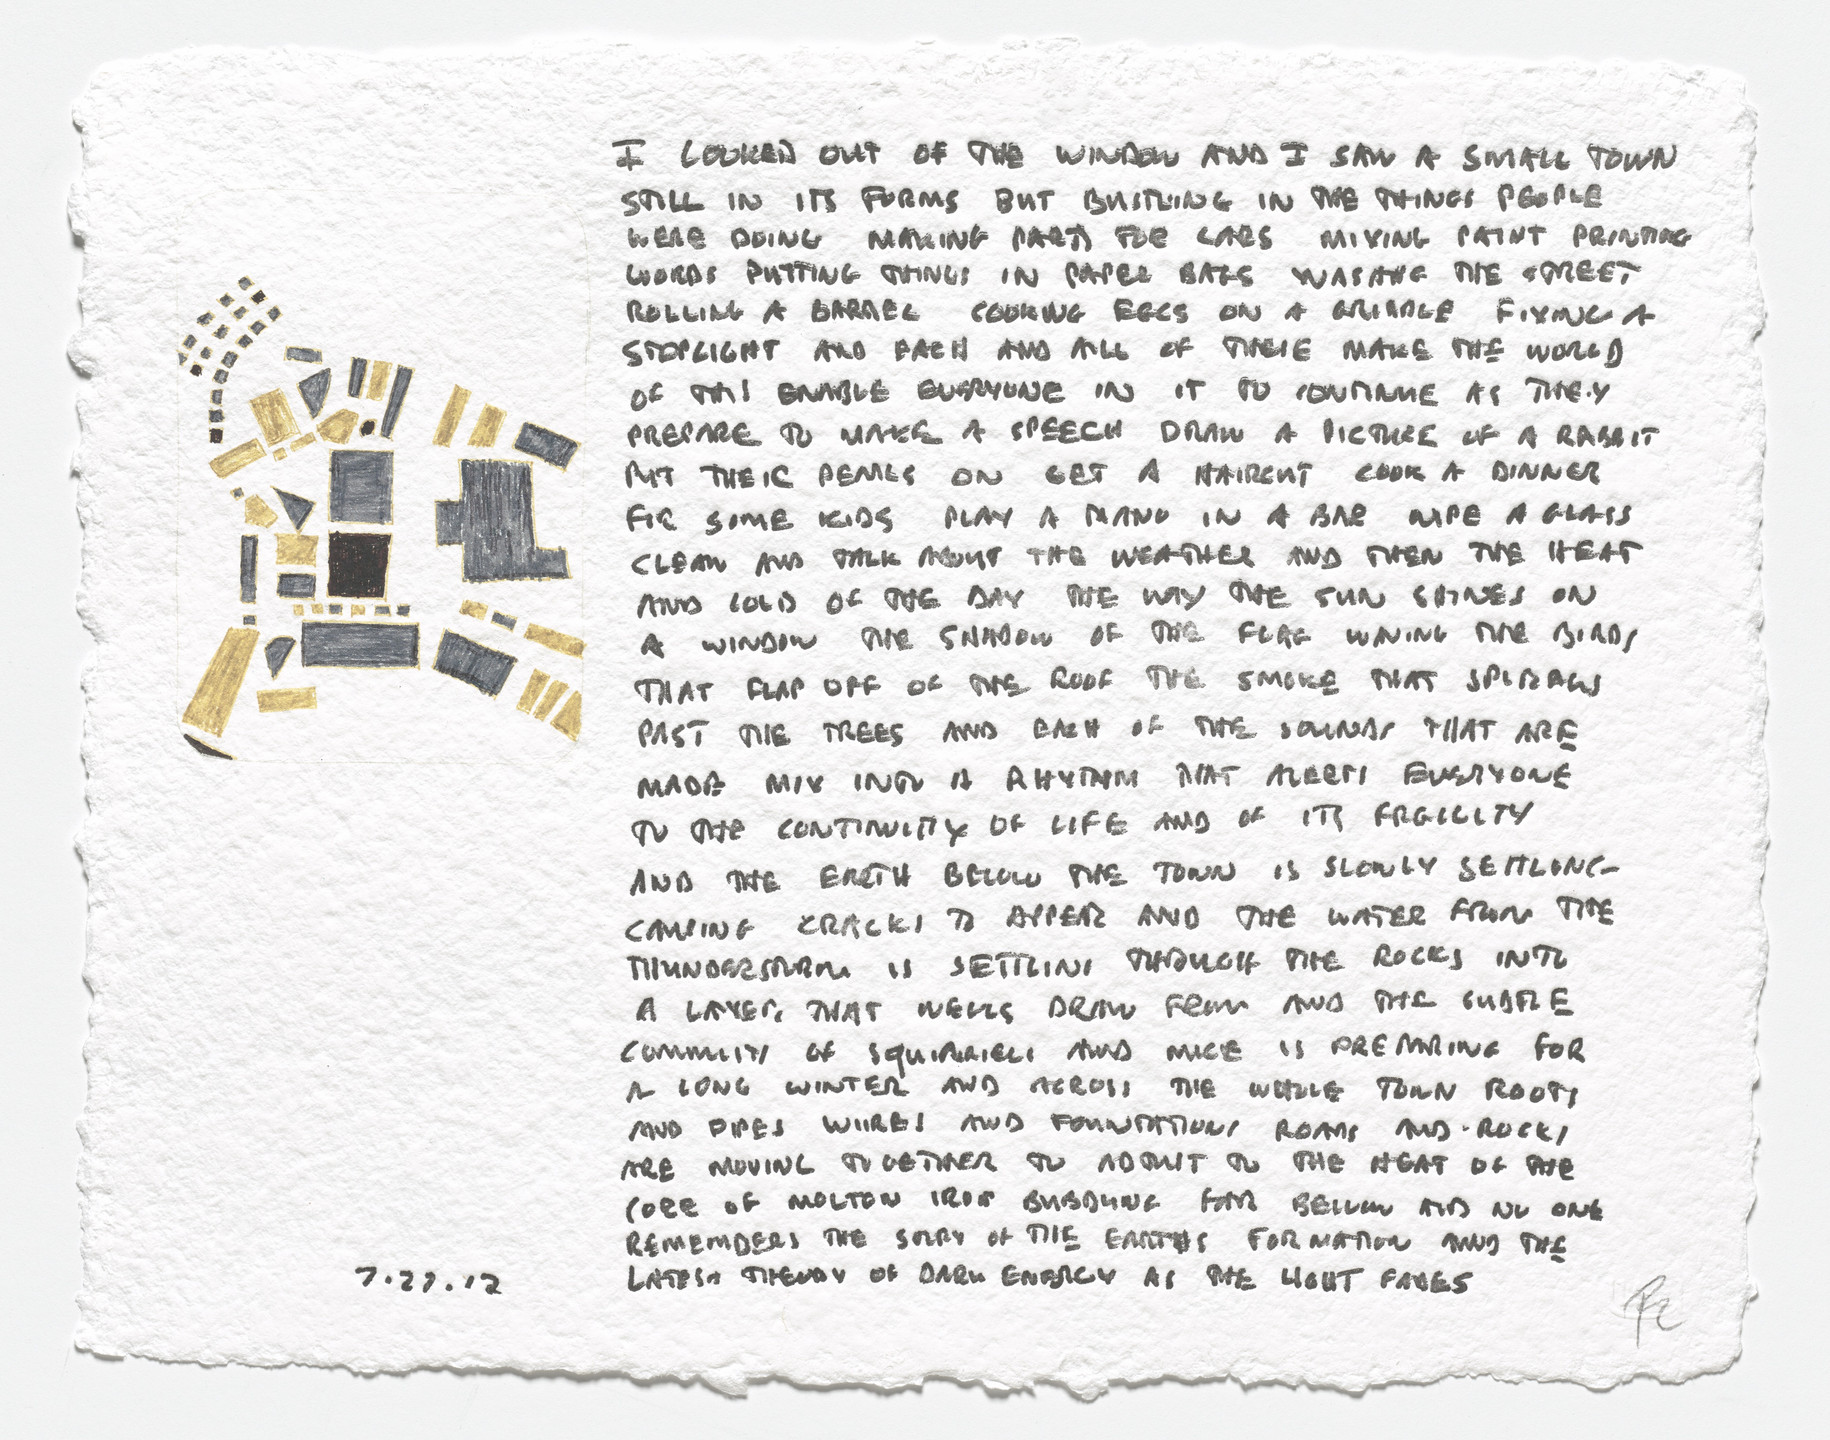 I LOOKED OUT OF THE WINDOW AND I SAW A SMALL TOWN
STILL IN ITS FORMS BUT BUSTLING IN THE THINGS PEOPLE
WERE DOING MAKING PARTS FOR CARS MIXING PAINT PRINTING
WORDS PUTTING THINGS IN PAPER BAGS WASHING THE STREET
ROLLING A BARREL COOKING EGGS ON A GRIDDLE FIXING A
STOPLIGHT AND EACH AND ALL OF THESE MAKE THE WORLD
OF THIS ENABLE EVERYONE IN IT TO CONTINUE AS THEY
PREPARE TO MAKE A SPEECH DRAW A PICTURE OF A RABBIT
PUT THEIR PEARLS ON GET A HAIRCUT COOK A DINNER
FOR SOME KIDS PLAY A PIANO IN A BAR WIPE A GLASS
CLEAN AND TALK ABOUT THE WEATHER AND THEN THE HEAT
AND COLD OF THE DAY THE WAY THE SUN SHINES ON
A WINDOW THE SHADOW OF THE FLAG WAVING THE BIRDS
THAT FLAP OFF OF THE ROOF THE SMOKE THAT SPIRALS
PAST THE TREES AND EACH OF THE SOUNDS THAT ARE
MADE MIX INTO A RHYTHM THAT ALERTS EVERYONE
TO THE CONTINUITY OF LIFE AND OF ITS FRGILITY
AND THE EARTH BELOW THE TOWN IS SLOWLY SETTLING
CAUSING CRACKS TO APPEAR AND THE WATER FROM THE
THUNDERSTORM IS SETTLING THROUGH THE ROCKS INTO
A LAYER THAT WELLS DRAW FROM AND THE SUBTLE
COMMUNITY OF SQUIRRELS AND MICE IS PREPARING FOR
A LONG WINTER AND ACROSS THE WHOLE TOWN ROOTS
AND PIPES WIRES AND FOUNDATIONS ROADS AND ROCKS
ARE MOVING TOGETHER TO ADJUST TO THE HEAT OF THE
CORE OF MOLTON IRON BUBBLING FAR BELOW AND NO ONE
REMEMBERS THE STORY OF THE EARTHS FORMATION AND THE
LATEST THEORY OF DARK ENERGY AS THE LIGHT FADES
7.27.12